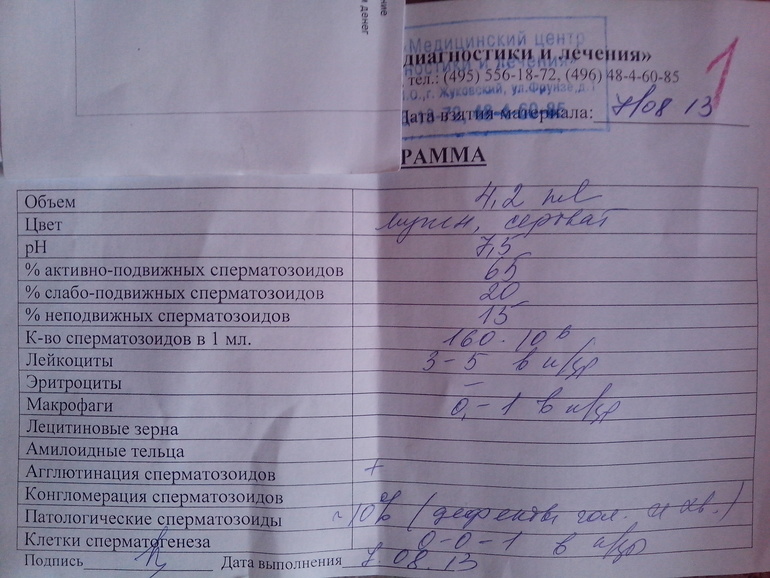 ние
и денег
1
Медицинский центр
диагностики и лечения»
тел.: (495) 556-18-72, (496) 48-4-60-85
г. Жуковский, ул.Фрунзе, д.1
48-4-60-85
Дата взятия материала: 7/08 13
РАММА
Объем 4,2 мл
Цвет мутн, сероват
pH 7,5
% активно-подвижных сперматозоидов 65
% слабо-подвижных сперматозоидов 20
% неподвижных сперматозоидов 15
К-во сперматозоидов в 1 мл. 160·10⁶
Лейкоциты 3-5 в п/зр
Эритроциты –
Макрофаги 0-1 в п/зр
Лецитиновые зерна
Амилоидные тельца
Агглютинация сперматозоидов +
Конгломерация сперматозоидов
Патологические сперматозоиды ~10% (дефекты гол. и хв.)
Клетки сперматогенеза 0-0-1 в п/зр
Подпись Дата выполнения 7.08.13